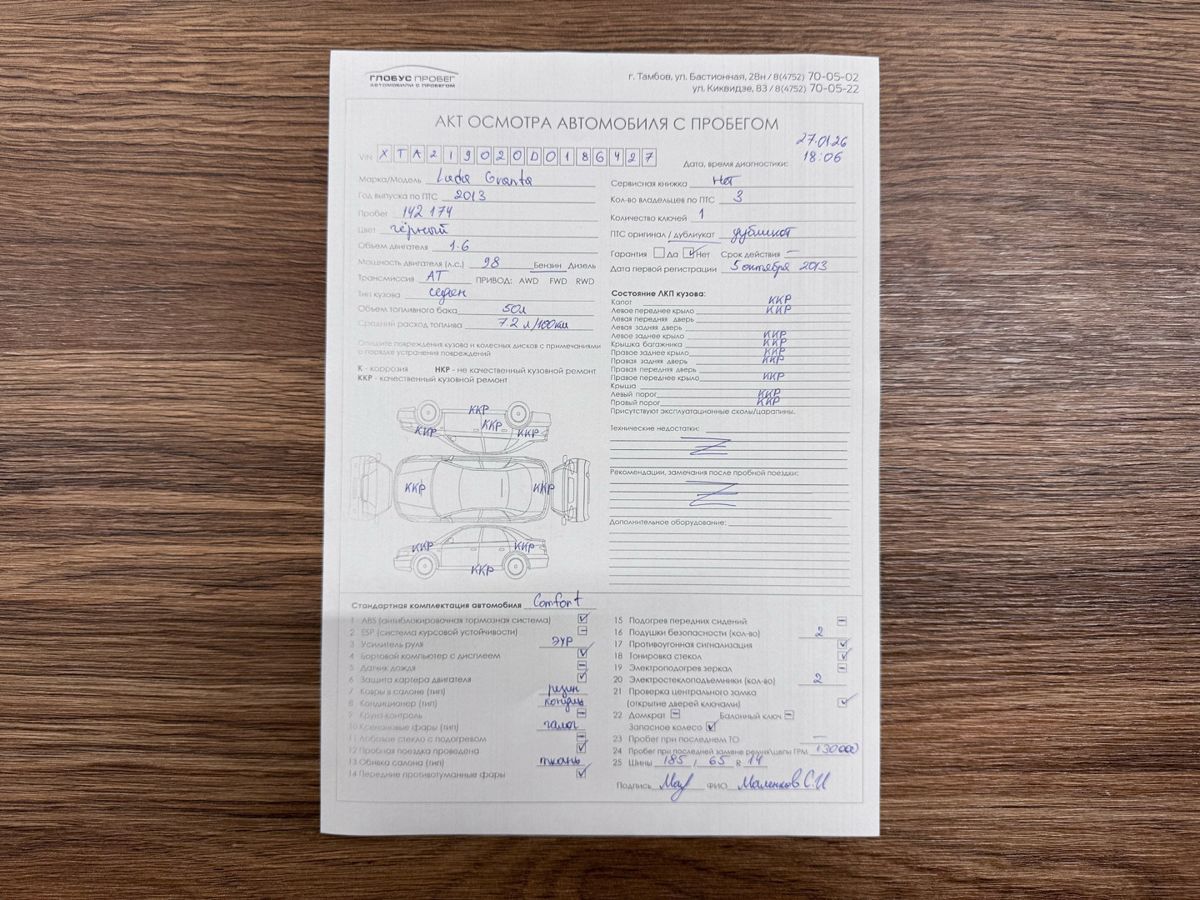 ГЛОБУС ПРОБЕГ
АВТОМОБИЛИ С ПРОБЕГОМ
г. Тамбов, ул. Бастионная, 28н / 8(4752) 70-05-02
ул. Киквидзе, 83 / 8(4752) 70-05-22
АКТ ОСМОТРА АВТОМОБИЛЯ С ПРОБЕГОМ
VIN XTA219020D0186427
Дата, время диагностики: 27.01.26 18:06
Марка/Модель Lada Granta
Год выпуска по ПТС 2013
Пробег 142 174
Цвет чёрный
Объем двигателя 1.6
Мощность двигателя (л.с.) 98 Бензин Дизель
Трансмиссия АТ ПРИВОД: AWD FWD RWD
Тип кузова седан
Объем топливного бака 50л
Средний расход топлива 7.2 л/100км
Опишите повреждения кузова и колесных дисков с примечаниями
о порядке устранения повреждений
К - коррозия НКР - не качественный кузовной ремонт
ККР - качественный кузовной ремонт
ККР
ККР ККР ККР
ККР ККР
ККР ККР
ККР
Сервисная книжка Нет
Кол-во владельцев по ПТС 3
Количество ключей 1
ПТС оригинал / дубликат дубликат
Гарантия Да Нет Срок действия —
Дата первой регистрации 5 октября 2013
Состояние ЛКП кузова:
Капот ККР
Левое переднее крыло ККР
Левая передняя дверь
Левая задняя дверь
Левое заднее крыло ККР
Крышка багажника ККР
Правое заднее крыло ККР
Правая задняя дверь ККР
Правая передняя дверь
Правое переднее крыло ККР
Крыша
Левый порог ККР
Правый порог ККР
Присутствуют эксплуатационные сколы/царапины.
Технические недостатки:
Рекомендации, замечания после пробной поездки:
Дополнительное оборудование:
Стандартная комплектация автомобиля Comfort
1 ABS (антиблокировочная тормозная система)
2 ESP (система курсовой устойчивости)
3 Усилитель руля ЭУР
4 Бортовой компьютер с дисплеем
5 Датчик дождя
6 Защита картера двигателя
7 Ковры в салоне (тип) резин
8 Кондиционер (тип) кондиц
9 Круиз контроль
10 Ксеноновые фары (тип) галог
11 Лобовое стекло с подогревом
12 Пробная поездка проведена
13 Обивка салона (тип) ткань
14 Передние противотуманные фары
15 Подогрев передних сидений
16 Подушки безопасности (кол-во) 2
17 Противоугонная сигнализация
18 Тонировка стекол
19 Электроподогрев зеркал
20 Электростеклоподъемники (кол-во) 2
21 Проверка центрального замка
(открытие дверей ключами)
22 Домкрат Балонный ключ
Запасное колесо
23 Пробег при последнем ТО —
24 Пробег при последней замене ремня/цепи ГРМ 130000
25 Шины 185 / 65 R 14
Подпись ФИО Маленков С.И